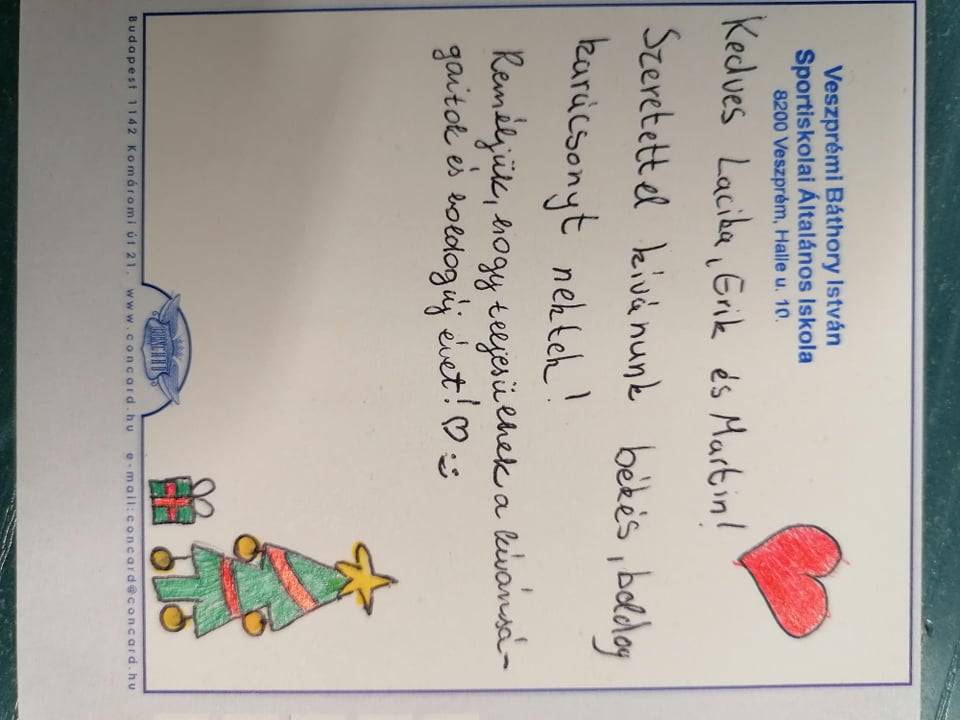 Veszprémi Báthory István
Sportiskolai Általános Iskola
8200 Veszprém, Halle u. 10.
Kedves Laciba, Erik és Martin!
Szeretettel kívánunk békés, boldog
karácsonyt nektek!
Reméljük, hogy teljesülnek a kívánsá-
gaitok és boldog új évet! ♡ :)
CONCARD
Budapest 1142 Komáromi út 21. www.concard.hu e-mail:concard@concard.hu